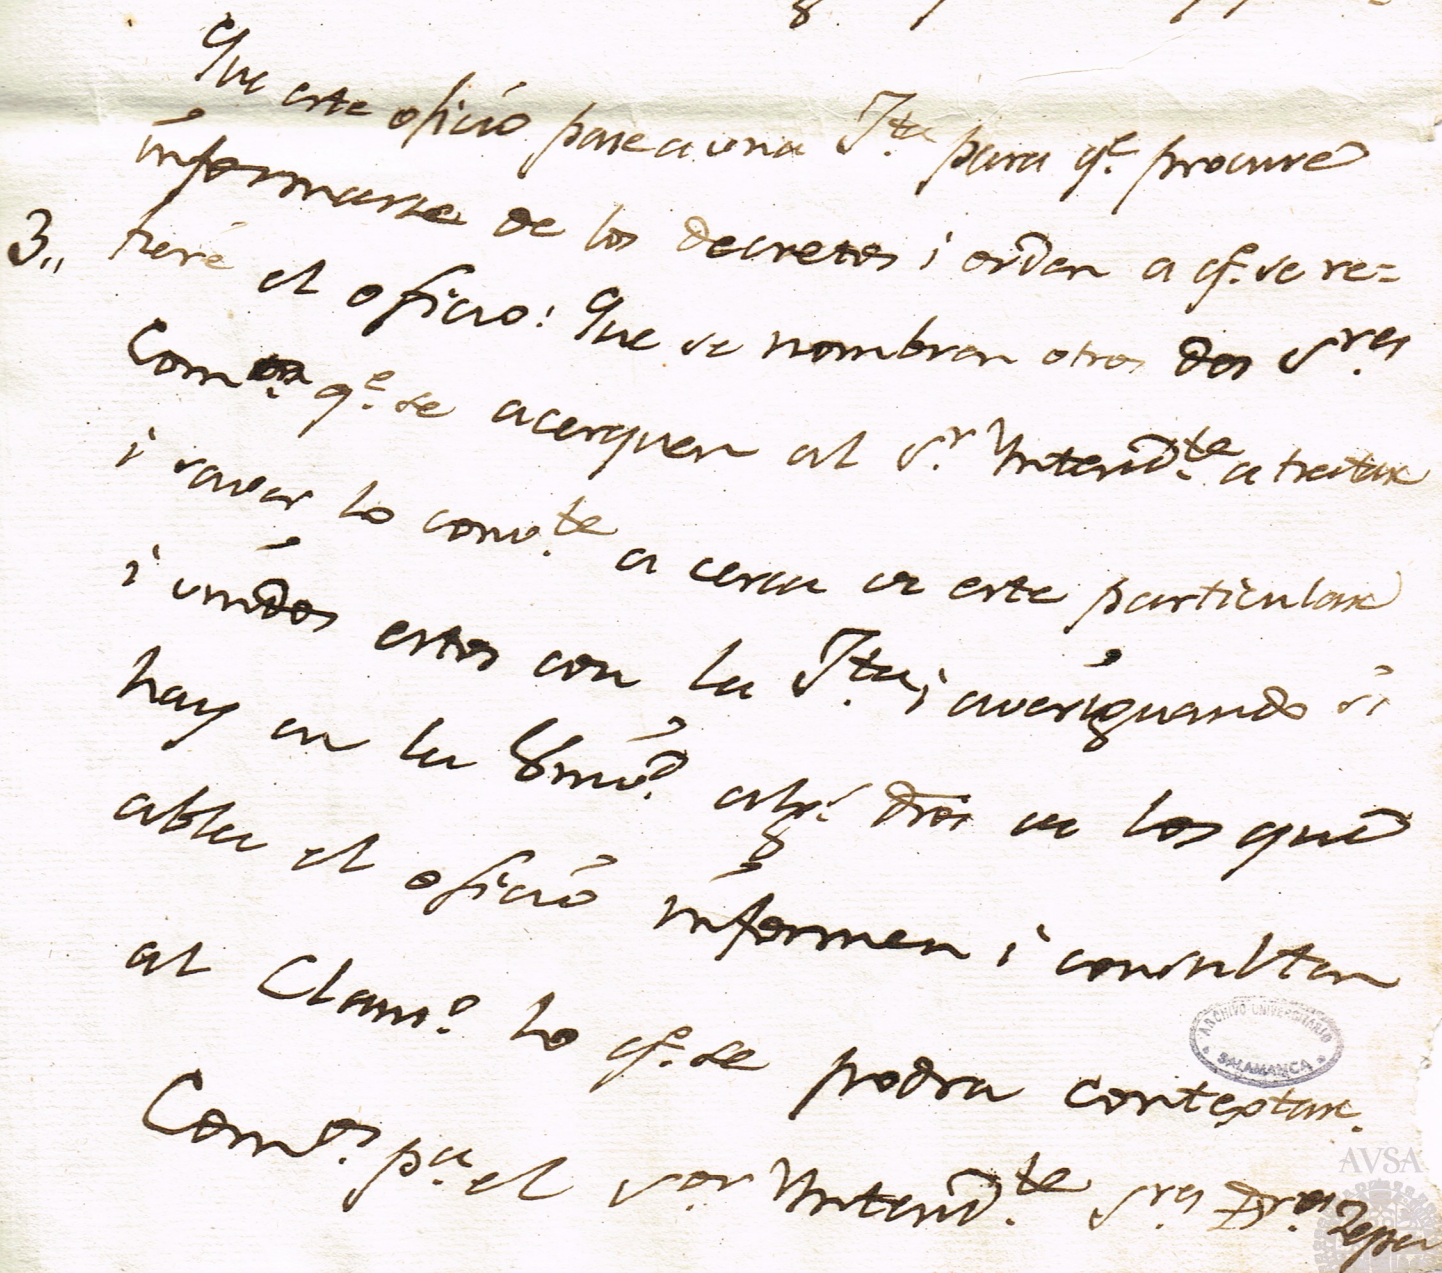 Que este oficio pase a una Jta. para qe. procure
informarse de los decretos i orden a qe. se re=
3,, fiere el oficio: Que se nombren otros dos Sres.
Comos. qe. se acerquen al Sr. Yntendte. a tratar
i saver lo convte. a cerca de este particular
i unidos estos con la Jta. i averiguando si
hay en la Univd. algs. dros de los que
abla el oficio informen i consulten
al Claus̃o. lo qe. se podra contextar.
Comos. pa. el Sor. Yntendte. Sres. Dres.
ARCHIVO UNIVERSITARIO
SALAMANCA
AVSA